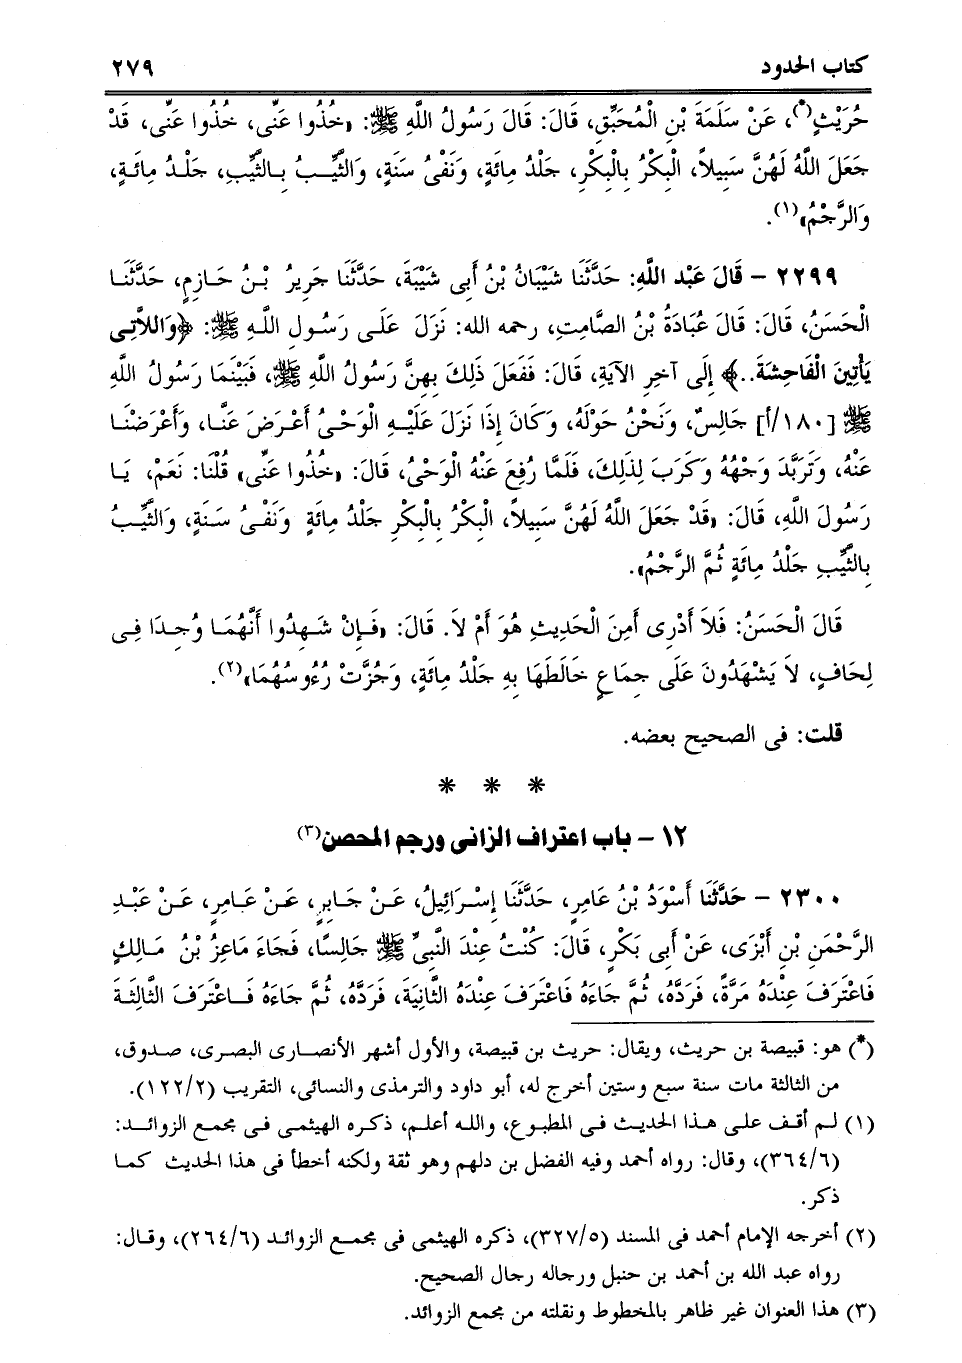 كتاب الحدود ٢٧٩
حُرَيْثٍ(*)، عَنْ سَلَمَةَ بْنِ الْمُحَبِّقِ، قَالَ: قَالَ رَسُولُ اللَّهِ ﷺ: «خُذُوا عَنِّى، خُذُوا عَنِّى، قَدْ
جَعَلَ اللَّهُ لَهُنَّ سَبِيلاً، الْبِكْرُ بِالْبِكْرِ، جَلْدُ مِائَةٍ، وَنَفْىُ سَنَةٍ، وَالثَّيِّبُ بِالثَّيِّبِ، جَلْدُ مِائَةٍ،
وَالرَّجْمُ»(١).
٢٢٩٩ – قَالَ عَبْد اللَّهِ: حَدَّثَنَا شَيْبَانُ بْنُ أَبِى شَيْبَةَ، حَدَّثَنَا جَرِيرُ بْنُ حَازِمٍ، حَدَّثَنَا
الْحَسَنُ، قَالَ: قَالَ عُبَادَةُ بْنُ الصَّامِتِ، رحمه الله: نَزَلَ عَلَى رَسُولِ اللَّهِ ﷺ: ﴿وَاللاَّتِى
يَأْتِينَ الْفَاحِشَةَ..﴾ إِلَى آخِرِ الآيَةِ، قَالَ: فَفَعَلَ ذَلِكَ بِهِنَّ رَسُولُ اللَّهِ ﷺ، فَبَيْنَمَا رَسُولُ اللَّهِ
ﷺ [١٨٠/أ] جَالِسٌ، وَنَحْنُ حَوْلَهُ، وَكَانَ إِذَا نَزَلَ عَلَيْهِ الْوَحْىُ أَعْرَضَ عَنَّا، وَأَعْرَضْنَا
عَنْهُ، وَتَرَبَّدَ وَجْهُهُ وَكَرَبَ لِذَلِكَ، فَلَمَّا رُفِعَ عَنْهُ الْوَحْىُ، قَالَ: «خُذُوا عَنِّى» قُلْنَا: نَعَمْ، يَا
رَسُولَ اللَّهِ، قَالَ: «قَدْ جَعَلَ اللَّهُ لَهُنَّ سَبِيلاً، الْبِكْرُ بِالْبِكْرِ جَلْدُ مِائَةٍ وَنَفْىُ سَنَةٍ، وَالثَّيِّبُ
بِالثَّيِّبِ جَلْدُ مِائَةٍ ثُمَّ الرَّجْمُ».
قَالَ الْحَسَنُ: فَلاَ أَدْرِى أَمِنَ الْحَدِيثِ هُوَ أَمْ لاَ. قَالَ: «فَإِنْ شَهِدُوا أَنَّهُمَا وُجِدَا فِى
لِحَافٍ، لاَ يَشْهَدُونَ عَلَى جِمَاعٍ خَالَطَهَا بِهِ جَلْدُ مِائَةٍ، وَجُزَّتْ رُءُوسُهُمَا»(٢).
قلت: فى الصحيح بعضه.
* * *
١٢ – باب اعتراف الزانى ورجم المحصن(٣)
٢٣٠٠ – حَدَّثَنَا أَسْوَدُ بْنُ عَامِرٍ، حَدَّثَنَا إِسْرَائِيلُ، عَنْ جَابِرٍ، عَنْ عَامِرٍ، عَنْ عَبْدِ
الرَّحْمَنِ بْنِ أَبْزَى، عَنْ أَبِى بَكْرٍ، قَالَ: كُنْتُ عِنْدَ النَّبِىِّ ﷺ جَالِسًا، فَجَاءَ مَاعِزُ بْنُ مَالِكٍ
فَاعْتَرَفَ عِنْدَهُ مَرَّةً، فَرَدَّهُ، ثُمَّ جَاءَهُ فَاعْتَرَفَ عِنْدَهُ الثَّانِيَةَ، فَرَدَّهُ، ثُمَّ جَاءَهُ فَاعْتَرَفَ الثَّالِثَةَ
(*) هو: قبيصة بن حريث، ويقال: حريث بن قبيصة، والأول أشهر الأنصارى البصرى، صدوق،
من الثالثة مات سنة سبع وستين أخرج له، أبو داود والترمذى والنسائى، التقريب (١٢٢/٢).
(١) لم أقف على هذا الحديث فى المطبوع، والله أعلم، ذكره الهيثمى فى مجمع الزوائد:
(٣٦٤/٦)، وقال: رواه أحمد وفيه الفضل بن دلهم وهو ثقة ولكنه أخطأ فى هذا الحديث كما
ذكر.
(٢) أخرجه الإمام أحمد فى المسند (٣٢٧/٥)، ذكره الهيثمى فى مجمع الزوائد (٢٦٤/٦)، وقال:
رواه عبد الله بن أحمد بن حنبل ورجاله رجال الصحيح.
(٣) هذا العنوان غير ظاهر بالمخطوط ونقلته من مجمع الزوائد.